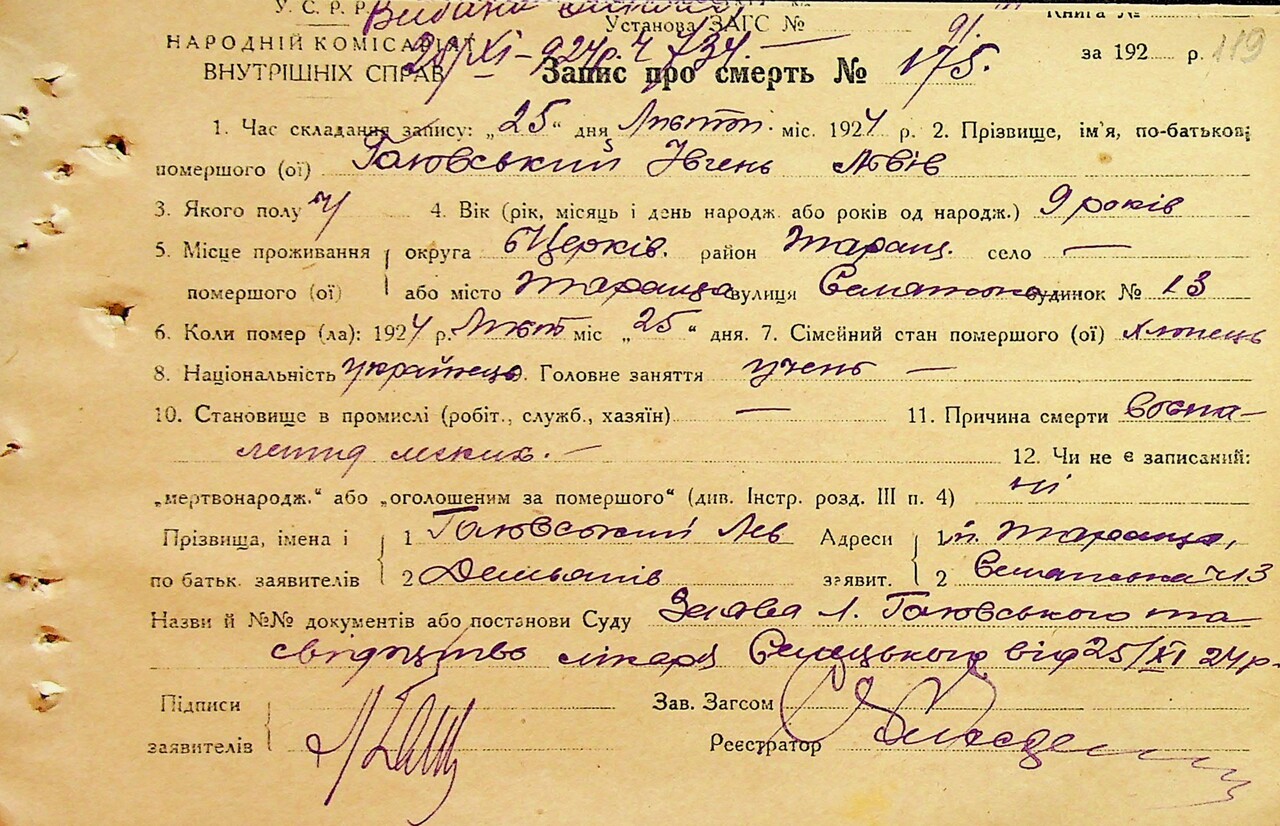 У. С. Р. Р. Видано
Установа ЗАГС № Книга №
НАРОДНІЙ КОМІСАРІАТ 28/XI–924р. ч 734. — за 192 р. 119
ВНУТРІШНІХ СПРАВ Запис про смерть № 175.
1. Час складання запису: „25“ дня міс. 1924 р. 2. Прізвище, ім'я, по-батькові
помершого (ої) Гаювський Івгень Львів
3. Якого полу ч 4. Вік (рік, місяць і день народж. або років од народж.) 9 років
5. Місце проживання округа БЦерків. район Таращ. село —
помершого (ої) або місто Тараща вулиця будинок № 13
6. Коли помер (ла): 1924 р. міс „25“ дня. 7. Сімейний стан помершого (ої) хлопець
8. Національність українець. Головне заняття учень —
10. Становище в промислі (робіт., служб., хазяїн) — 11. Причина смерти воспа-
12. Чи не є записаний:
„мертвонародж.“ або „оголошеним за помершого“ (див. Інстр. розд. III п. 4) ні
Прізвища, імена і 1 Гаювський Лев Адреси 1 м. Тараща,
по батьк. заявителів 2 Демьянів заявит. 2 ч 13
Назви й №№ документів або постанови Суду Заява Л. Гаювського та
свідоцтво лікаря від 25/XI 24 р.
Підписи Зав. Загсом
заявителів Реєстратор